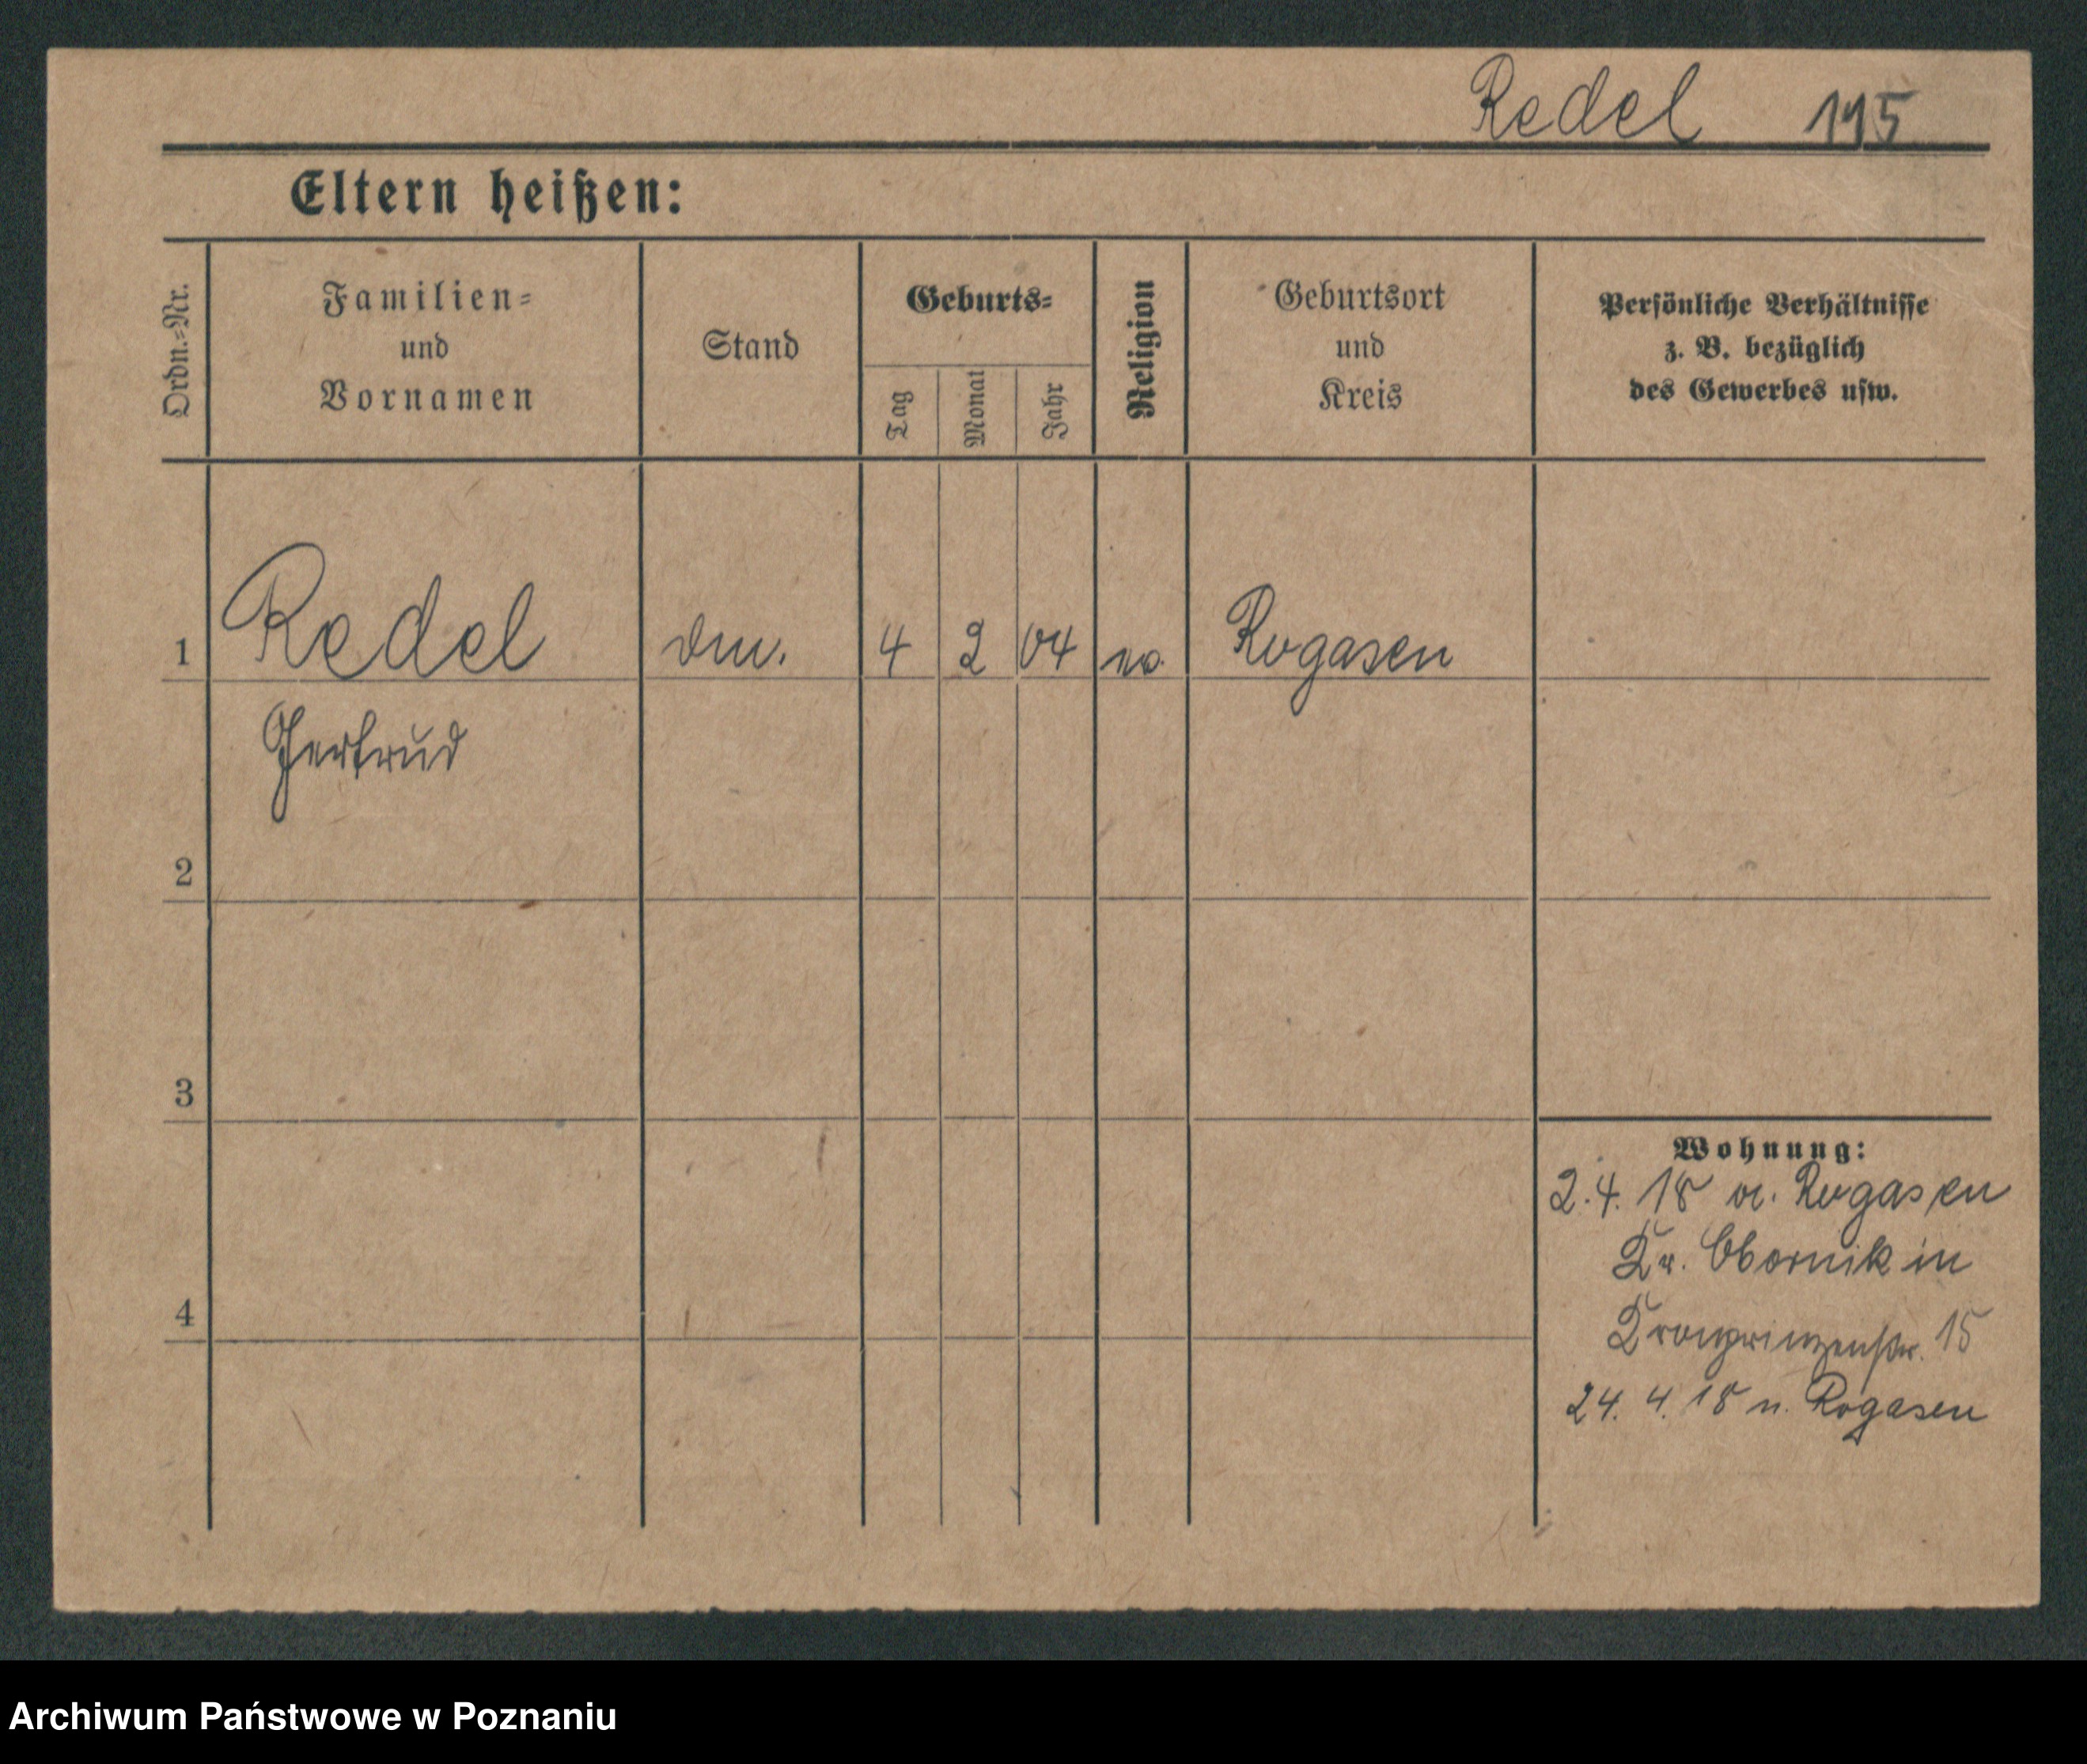 Redel 195
Eltern heißen:
Ordn.-Nr.
Familien-
und
Vornamen
Stand
Geburts-
Tag
Monat
Jahr
Religion
Geburtsort
und
Kreis
Persönliche Verhältnisse
z. B. bezüglich
des Gewerbes usw.
1 Redel 4 2 04 Rogasen
Gertrud
2
3
4
Wohnung:
2.4.18 Rogasen
Kr. Obornik in
Kronprinzenstr. 15
24. 4. 18 n. Rogasen
Archiwum Państwowe w Poznaniu